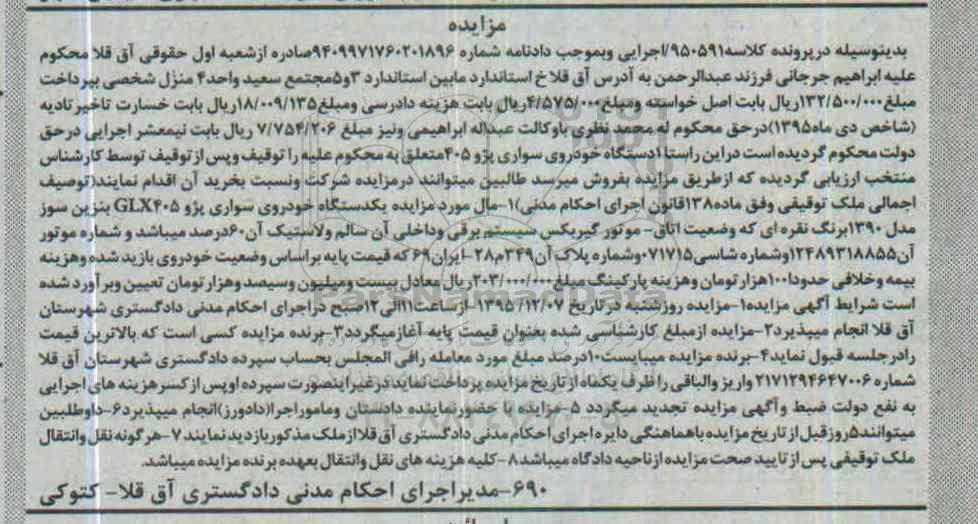 مزایده
بدینوسیله درپرونده کلاسه۹۵۰۵۹۱/اجرایی وبموجب دادنامه شماره ۹۴۰۹۹۷۱۷۶۰۲۰۱۸۹۶صادره ازشعبه اول حقوقی آق قلا محکوم
علیه ابراهیم جرجانی فرزند عبدالرحمن به آدرس آق قلا خ استاندارد مابین استاندارد ۳و۵مجتمع سعید واحد۴ منزل شخصی بپرداخت
مبلغ۱۳۲/۵۰۰/۰۰۰ریال بابت اصل خواسته ومبلغ۴/۵۷۵/۰۰۰ریال بابت هزینه دادرسی ومبلغ۱۸/۰۰۹/۱۳۵ریال بابت خسارت تاخیر تادیه
(شاخص دی ماه۱۳۹۵)درحق محکوم له محمد نظری باوکالت عبداله ابراهیمی ونیز مبلغ ۷/۷۵۴/۲۰۶ ریال بابت نیمعشر اجرایی درحق
دولت محکوم گردیده است دراین راستا۱دستگاه خودروی سواری پژو ۴۰۵متعلق به محکوم علیه را توقیف وپس ازتوقیف توسط کارشناس
منتخب ارزیابی گردیده که ازطریق مزایده بفروش میرسد طالبین میتوانند درمزایده شرکت ونسبت بخرید آن اقدام نمایند(توصیف
اجمالی ملک توقیفی وفق ماده۱۳۸قانون اجرای احکام مدنی)۱-مال مورد مزایده یکدستگاه خودروی سواری پژو GLX۴۰۵ بنزین سوز
مدل ۱۳۹۰برنگ نقره ای که وضعیت اتاق- موتور گیربکس سیستم برقی وداخلی آن سالم ولاستیک آن۶۰درصد میباشد و شماره موتور
آن۱۲۴۸۹۳۱۸۸۵۵وشماره شاسی۰۷۱۷۱۵وشماره پلاک آن۳۴۹م۲۸-ایران۶۹ که قیمت پایه براساس وضعیت خودروی بازید شده وهزینه
بیمه وخلافی حدودا۱۰۰هزار تومان وهزینه پارکینگ مبلغ۲۰۳/۰۰۰/۰۰۰ریال معادل بیست ومیلیون وسیصد وهزار تومان تعیین وبرآورد شده
است شرایط آگهی مزایده۱-مزایده روزشنبه درتاریخ ۱۳۹۵/۱۲/۰۷ ازساعت۱۱الی۱۲صبح دراجرای احکام مدنی دادگستری شهرستان
آق قلا انجام میپذیرد۲-مزایده ازمبلغ کارشناسی شده بعنوان قیمت پایه آغازمیگردد۳-برنده مزایده کسی است که بالاترین قیمت
رادرجلسه قبول نماید۴-برنده مزایده میبایست۱۰درصد مبلغ مورد معامله رافی المجلس بحساب سپرده دادگستری شهرستان آق قلا
شماره ۲۱۷۱۲۹۴۶۴۷۰۰۶ واریز والباقی را ظرف یکماه ازتاریخ مزایده پرداخت نماید درغیراینصورت سپرده اوپس ازکسرهزینه های اجرایی
به نفع دولت ضبط وآگهی مزایده تجدید میگردد ۵-مزایده با حضورنماینده دادستان وماموراجرا(دادورز)انجام میپذیرد۶-داوطلبین
میتوانند۵روزقبل ازتاریخ مزایده باهماهنگی دایره اجرای احکام مدنی دادگستری آق قلاازملک مذکوربازدیدنمایند ۷-هرگونه نقل وانتقال
ملک توقیفی پس ازتایید صحت مزایده ازناحیه دادگاه میباشد۸-کلیه هزینه های نقل وانتقال بعهده برنده مزایده میباشد.
۶۹۰-مدیراجرای احکام مدنی دادگستری آق قلا- کتوکی